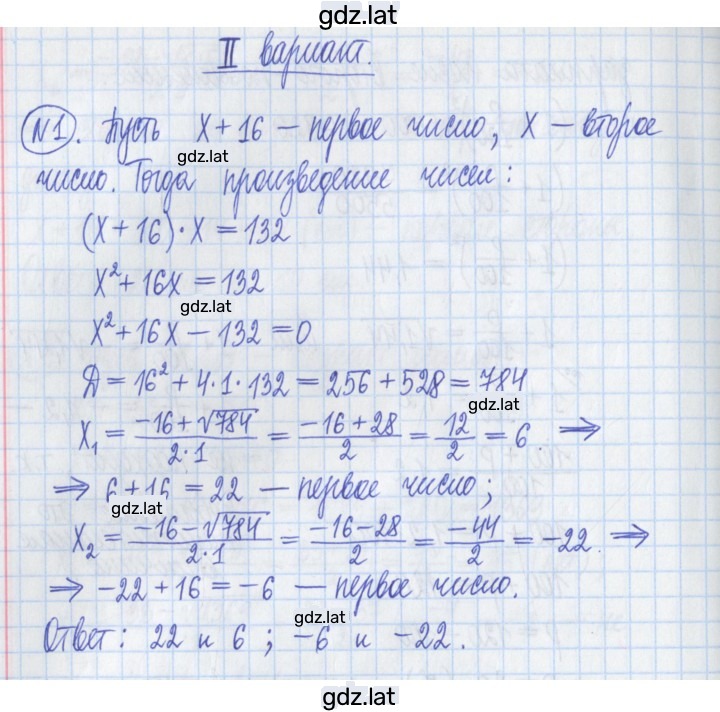 gdz.lat
II вариант.
№1. Пусть X + 16 – первое число, X – второе
gdz.lat
число. Тогда произведение чисел:
(X + 16) · X = 132
X² + 16X = 132
gdz.lat
X² + 16X – 132 = 0
Д = 16² + 4·1·132 = 256 + 528 = 784
gdz.lat
X₁ = (–16 + √784)/(2·1) = (–16 + 28)/2 = 12/2 = 6 ⇒
⇒ 6 + 16 = 22 – первое число;
gdz.lat
X₂ = (–16 – √784)/(2·1) = (–16 – 28)/2 = –44/2 = –22. ⇒
⇒ –22 + 16 = –6 – первое число.
gdz.lat
Ответ: 22 и 6; –6 и –22.
gdz.lat